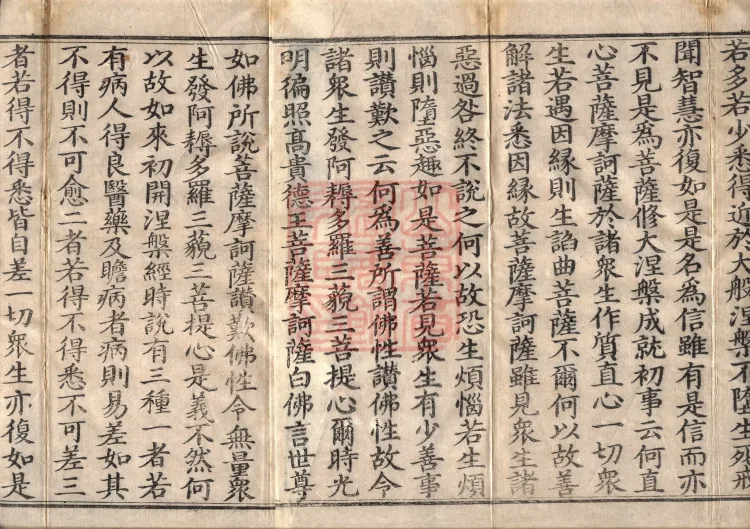 若多若少悉得近於大般涅槃不墮生死戒
聞智慧亦復如是是名爲信雖有是信而亦
不見是爲菩薩修大涅槃成就初事云何直
心菩薩摩訶薩於諸衆生作質直心一切衆
生若遇因縁則生諂曲菩薩不爾何以故善
解諸法悉因縁故菩薩摩訶薩雖見衆生諸
惡過咎終不說之何以故恐生煩惱若生煩
惱則墮惡趣如是菩薩若見衆生有少善事
則讃歎之云何爲善所謂佛性讃佛性故令
諸衆生發阿耨多羅三藐三菩提心爾時光
明徧照髙貴德王菩薩摩訶薩白佛言世尊
如佛所說菩薩摩訶薩讃歎佛性令無量衆
生發阿耨多羅三藐三菩提心是義不然何
以故如來初開涅槃經時說有三種一者若
有病人得良醫藥及瞻病者病則易差如其
不得則不可愈二者若得不得悉不可差三
者若得不得悉皆自差一切衆生亦復如是